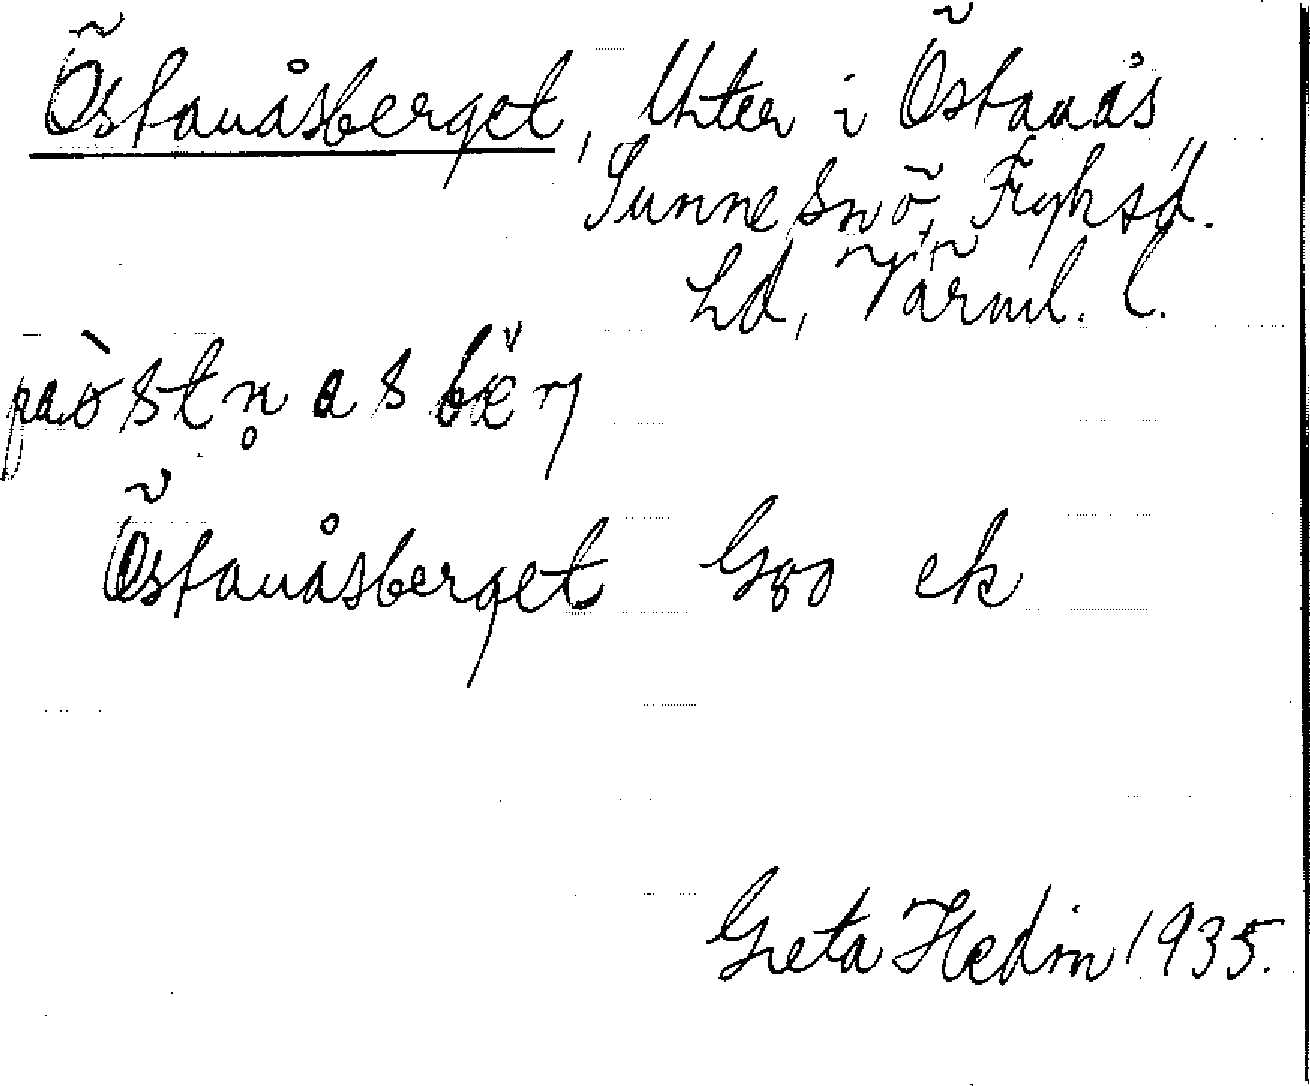 Östanåsberget, Uhter i Östanås
Sunne sn ö, Fryksd.
hd, Värml. l.
på òstn̥ a s bär
Östanåsberget G80 ek
Greta Hedin 1935.